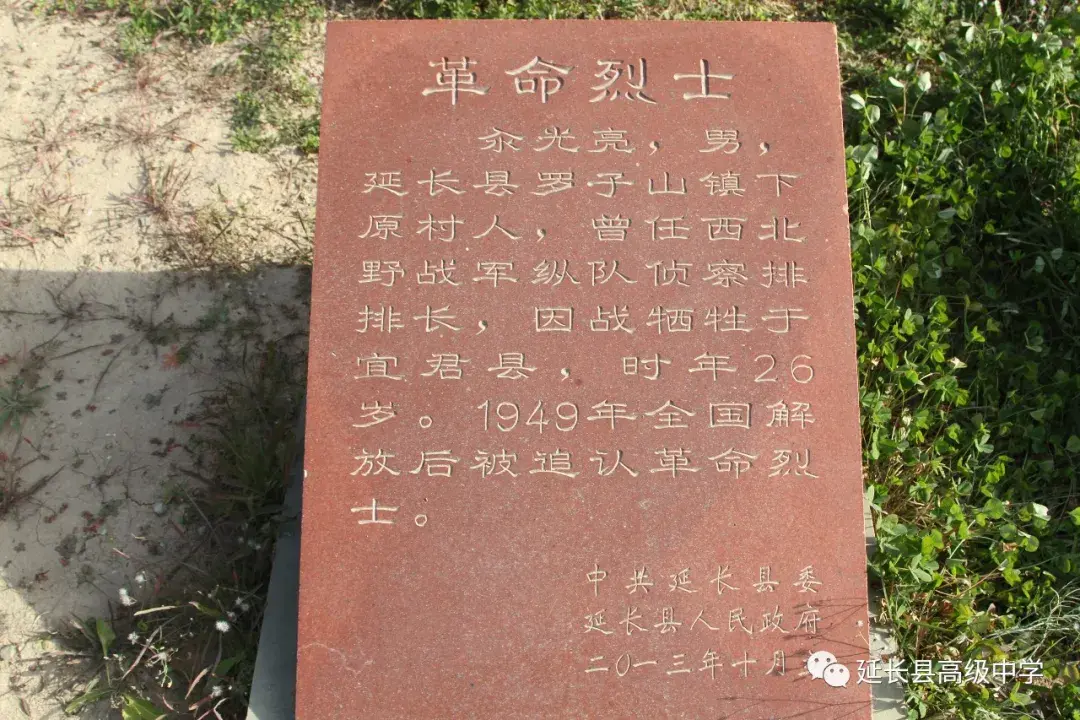 革命烈士
光亮，男，
延长县罗子山镇下
原村人，曾任西北
野战军纵队侦察排
排长，因战牺牲于
宜君县，时年26
岁。1949年全国解
放后被追认革命烈
士。
中共延长县委
延长县人民政府
二〇一三年十月
延长县高级中学